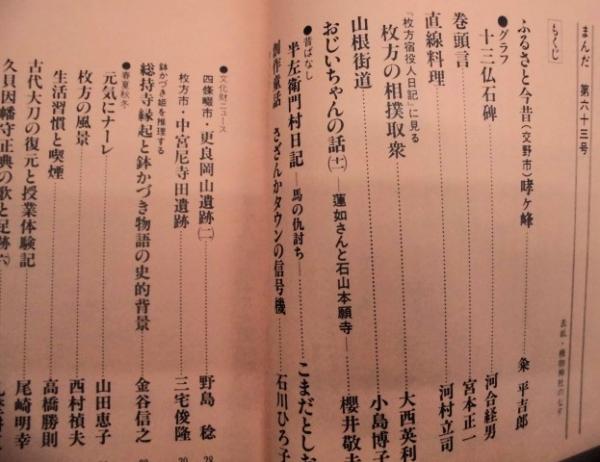 まんだ 第六十三号
もくじ
ふるさと今昔（交野市）哮ヶ峰 粂 平吉郎
●グラフ
十三仏石碑 河合経男
巻頭言 宮本正一
直線料理 河村立司
『枚方宿役人日記』に見る
枚方の相撲取衆 大西英利
山根街道 小島博子
おじいちゃんの話（十二）―蓮如さんと石山本願寺― 櫻井敬夫
●昔ばなし
半左衛門村日記―馬の仇討ち― こまだとしお
創作童話 さざんかタウンの信号機 石川ひろ子
●文化財ニュース
四條畷市・更良岡山遺跡（二） 野島 稔 28
枚方市・中宮尼寺田遺跡 三宅俊隆
鉢かづき姫を推理する
総持寺縁起と鉢かづき物語の史的背景 金谷信之
●春夏秋冬
元気にナーレ 山田恵子
枚方の風景 西村禎夫
生活習慣と喫煙 高橋勝則
古代大刀の復元と授業体験記 尾崎明幸
久貝因幡守正典の歌と足跡（六）